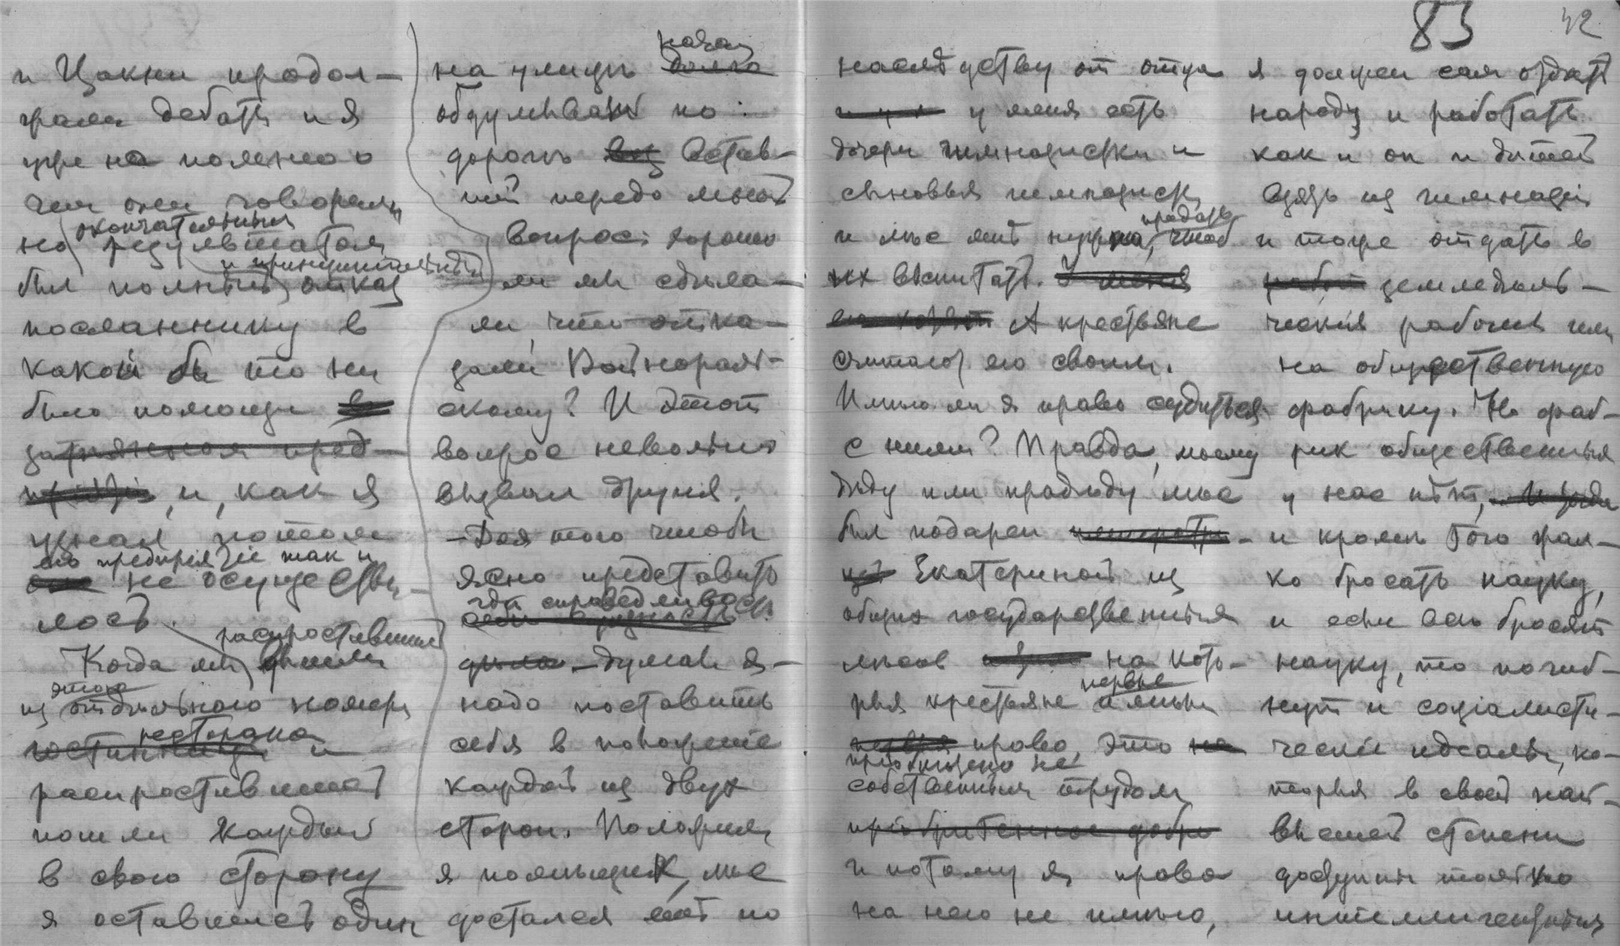 83
42
и Цакни продол-
жали дебаты и я
уже не помню о
чем они говорили,
окончательным
но результатом
и принципиальный
был полный отказ
посланнику в
какой бы то ни
было помощи в
затеянном пред-
и, как я
узнал потом
его предприятие так и
оно не осуществи-
лось.
распростившись
Когда мы вышли
этого
из отдельного номера
ресторана
гостинницы и
распростившись
пошли каждый
в свою сторону
я оставшись один
начал
на улице долго
обдумывать по
дорогѣ воз Встав-
ший передо мной
вопрос: хорошо
ли мы сдѣла-
ли что отка-
зали Войнораль-
скому? И этот
вопрос невольно
вызвал другия.
— Для того чтобы
ясно представить
гдѣ справедливость
думал я —
надо поставить
себя в положение
каждой из двух
сторон. Положим,
я помѣщик, мнѣ
достался лѣс по
наслѣдству от отца
у меня есть
дочери гимназистки и
сыновья гимназисты
продать
и мнѣ лѣс нужно, чтоб
их воспитать. У меня
А крестьяне
считают его своим.
Имѣю ли я право судиться
с ними? Правда, моему
дѣду или прадѣду лѣс
был подарен
Екатериной из
общих государственных
лѣсов на кото-
первые
рые крестьяне имѣли
первыя право, это не
приобрѣтено не
собственным трудом
приобрѣтенное добро
и потому я права
на него не имѣю,
я должен сам отдать
народу и работать
как и он и дѣтей
взять из гимназiи
и тоже отдать в
работ земледѣль-
ческiя рабочiе или
на общественную
фабрику. Но фаб-
рик общественных
у нас нѣт,
и кромѣ того жал-
ко бросать науку,
и если всѣ бросят
науку, то погиб-
нут и соцiалисти-
ческiе идеалы, ко-
торыя в своей наи-
высшей степени
доступны только
интеллигенции